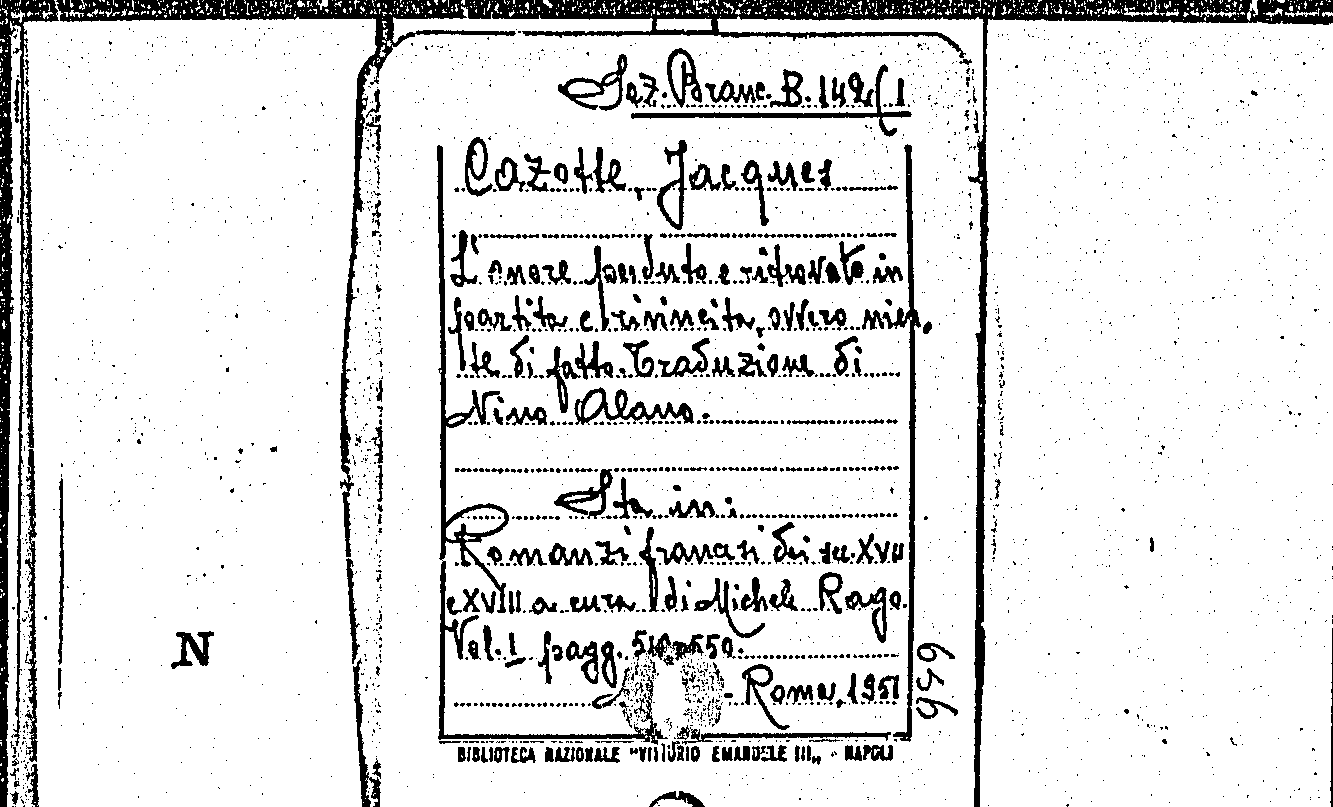 Sez. Branc. B. 142(1
Cazotte, Jacques
L'onore perduto e ritrovato in
partita e rivincita, ovvero nien-
te di fatto. Traduzione di
Nino Alano.
Sta in:
Romanzi francesi dei sec. XVII
e XVIII a cura di Michele Rago.
Vol. I pagg.
- Roma, 1951
BIBLIOTECA NAZIONALE "VITTORIO EMANUELE III„ - NAPOLI
N